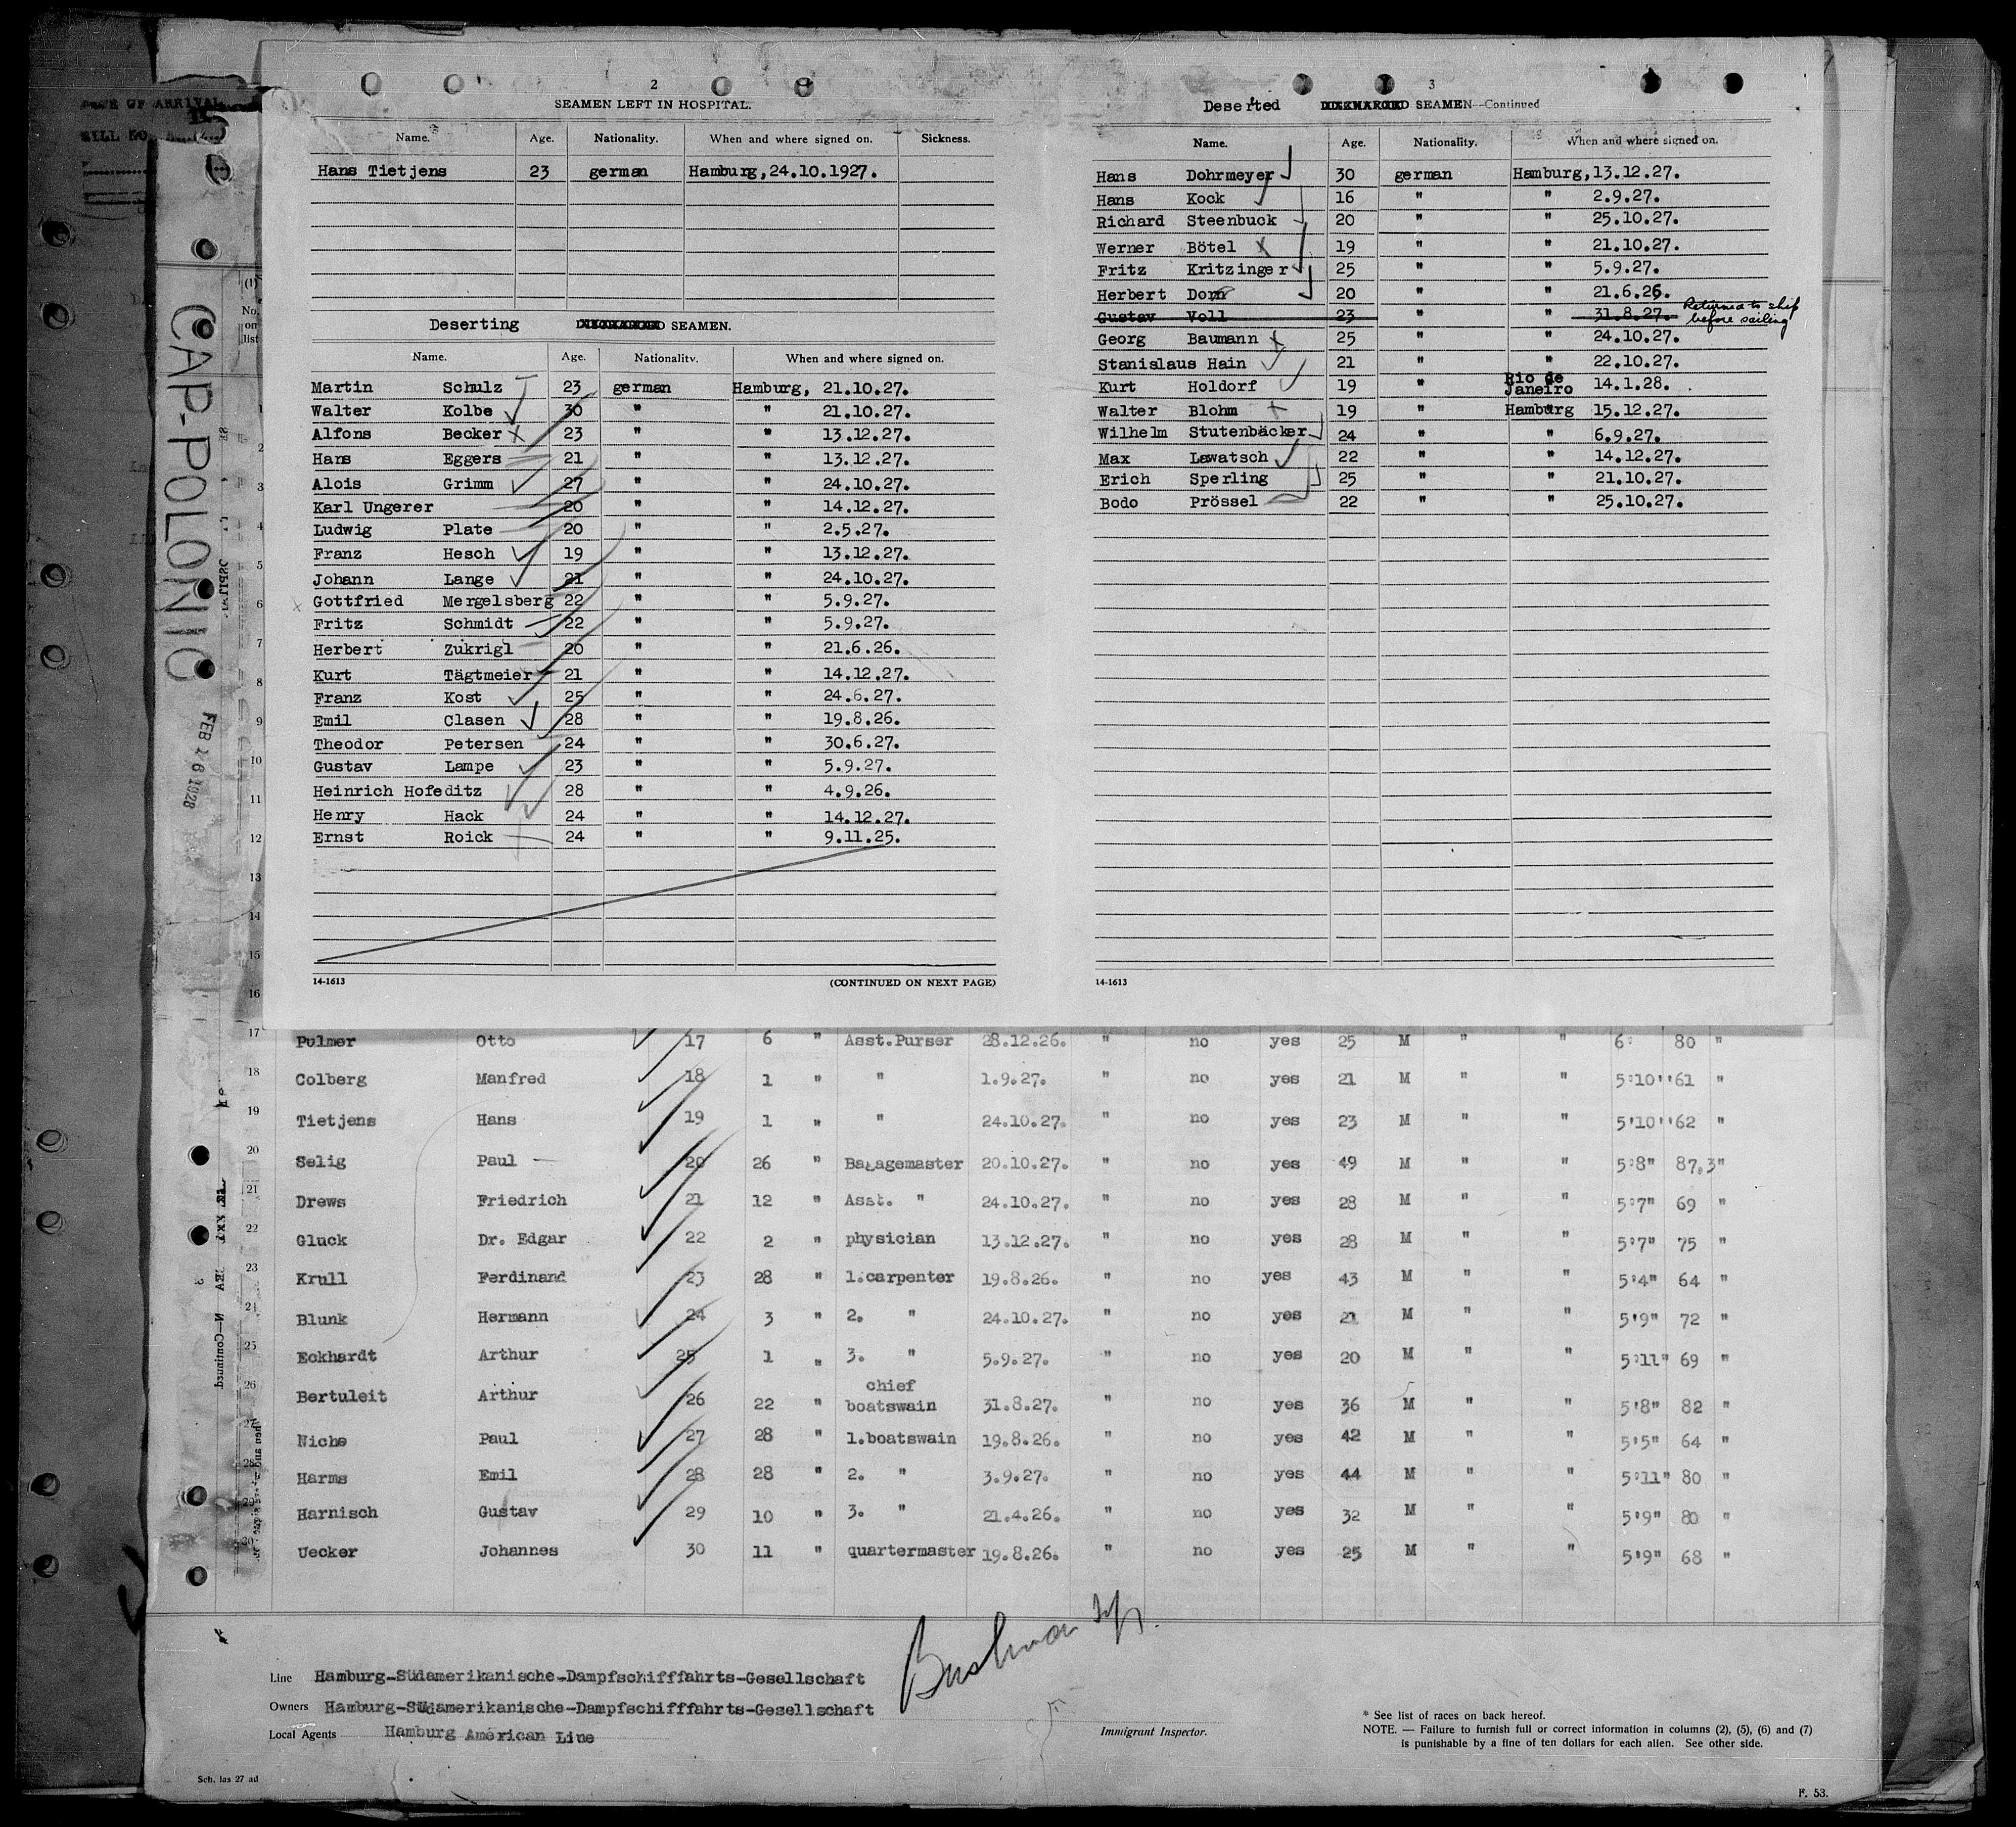 CAP-POLONIO
FEB 26 1928
2
SEAMEN LEFT IN HOSPITAL.
Name. Age. Nationality. When and where signed on. Sickness.
Hans Tietjens 23 german Hamburg,24.10.1927.
Deserting SEAMEN.
Name. Age. Nationality. When and where signed on.
Martin Schulz 23 german Hamburg, 21.10.27.
Walter Kolbe 30 " " 21.10.27.
Alfons Becker 23 " " 13.12.27.
Hans Eggers 21 " " 13.12.27.
Alois Grimm 27 " " 24.10.27.
Karl Ungerer 20 " " 14.12.27.
Ludwig Plate 20 " " 2.5.27.
Franz Hesch 19 " " 13.12.27.
Johann Lange 21 " " 24.10.27.
Gottfried Mergelsberg 22 " " 5.9.27.
Fritz Schmidt 22 " " 5.9.27.
Herbert Zukrigl 20 " " 21.6.26.
Kurt Tägtmeier 21 " " 14.12.27.
Franz Kost 25 " " 24.6.27.
Emil Clasen 28 " " 19.8.26.
Theodor Petersen 24 " " 30.6.27.
Gustav Lampe 23 " " 5.9.27.
Heinrich Hofeditz 28 " " 4.9.26.
Henry Hack 24 " " 14.12.27.
Ernst Roick 24 " " 9.11.25.
14-1613 (CONTINUED ON NEXT PAGE)
3
Deserted SEAMEN—Continued
Name. Age. Nationality. When and where signed on.
Hans Dohrmeyer 30 german Hamburg,13.12.27.
Hans Kock 16 " " 2.9.27.
Richard Steenbuck 20 " " 25.10.27.
Werner Bötel 19 " " 21.10.27.
Fritz Kritzinger 25 " " 5.9.27.
Herbert Dorn 20 " " 21.6.26.
Gustav Voll 23 " " 31.8.27. Returned to ship before sailing
Georg Baumann 25 " " 24.10.27.
Stanislaus Hain 21 " " 22.10.27.
Kurt Holdorf 19 " Rio de Janeiro 14.1.28.
Walter Blohm 19 " Hamburg 15.12.27.
Wilhelm Stutenbäcker 24 " " 6.9.27.
Max Lawatsch 22 " " 14.12.27.
Erich Sperling 25 " " 21.10.27.
Bodo Prössel 22 " " 25.10.27.
14-1613
17 Pulmer Otto 17 6 " Asst.Purser 28.12.26. " no yes 25 M " " 6' 80 "
18 Colberg Manfred 18 1 " " 1.9.27. " no yes 21 M " " 5'10" 61 "
19 Tietjens Hans 19 1 " " 24.10.27. " no yes 23 M " " 5'10" 62 "
20 Selig Paul 20 26 " Bagagemaster 20.10.27. " no yes 49 M " " 5'8" 87,3"
21 Drews Friedrich 21 12 " Asst. " 24.10.27. " no yes 28 M " " 5'7" 69 "
22 Gluck Dr. Edgar 22 2 " physician 13.12.27. " no yes 28 M " " 5'7" 75 "
23 Krull Ferdinand 23 28 " 1.carpenter 19.8.26. " no yes 43 M " " 5'4" 64 "
24 Blunk Hermann 24 3 " 2. " 24.10.27. " no yes 21 M " " 5'9" 72 "
25 Eckhardt Arthur 25 1 " 3. " 5.9.27. " no yes 20 M " " 5'11" 69 "
26 Bertuleit Arthur 26 22 " chief boatswain 31.8.27. " no yes 36 M " " 5'8" 82 "
27 Niche Paul 27 28 " 1.boatswain 19.8.26. " no yes 42 M " " 5'5" 64 "
28 Harms Emil 28 28 " 2. " 3.9.27. " no yes 44 M " " 5'11" 80 "
29 Harnisch Gustav 29 10 " 3. " 21.4.26. " no yes 32 M " " 5'9" 80 "
30 Uecker Johannes 30 11 " quartermaster 19.8.26. " no yes 25 M " " 5'9" 68 "
Line Hamburg-Südamerikanische-Dampfschifffahrts-Gesellschaft
Owners Hamburg-Südamerikanische-Dampfschifffahrts-Gesellschaft
Local Agents Hamburg American Line
Immigrant Inspector.
* See list of races on back hereof.
NOTE. — Failure to furnish full or correct information in columns (2), (5), (6) and (7)
is punishable by a fine of ten dollars for each alien. See other side.
Sch. las 27 ad
F. 53.